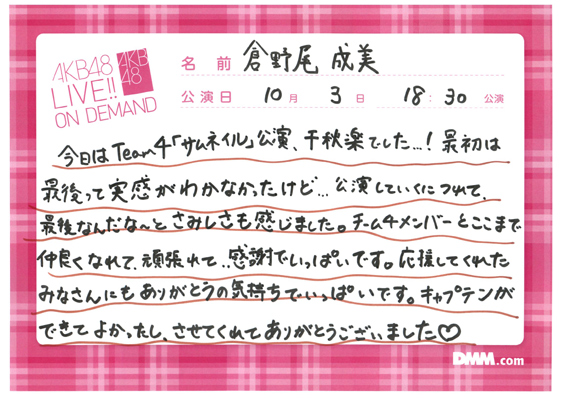 AKB48
LIVE!!
ON DEMAND
AKB
48
名前 倉野尾 成美
公演日 10月 3日 18:30 公演
今日はTeam4「サムネイル」公演、千秋楽でした…!最初は
最後って実感がわかなかったけど…公演していくにつれて、
最後なんだな〜とさみしさも感じました。チーム4メンバーとここまで
仲良くなれて、頑張れて、、感謝でいっぱいです。応援してくれた
みなさんにもありがとうの気持ちでいっぱいです。キャプテンが
できてよかったし、させてくれてありがとうございました♡
DMM.com